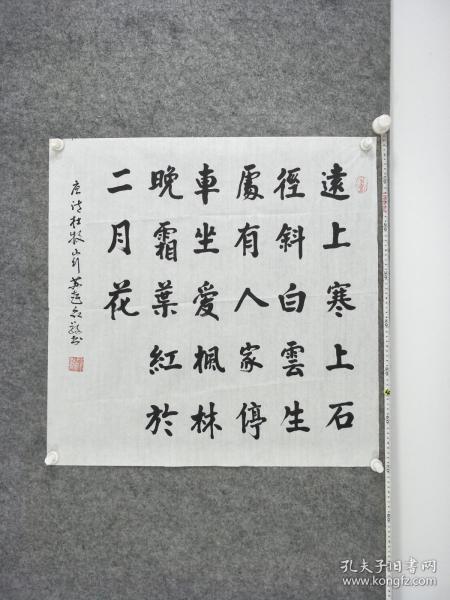 遠上寒上石
徑斜白雲生
處有人家停
車坐愛楓林
晚霜葉紅於
二月花
唐诗杜牧山行
孔夫子旧书网
www.kongfz.com